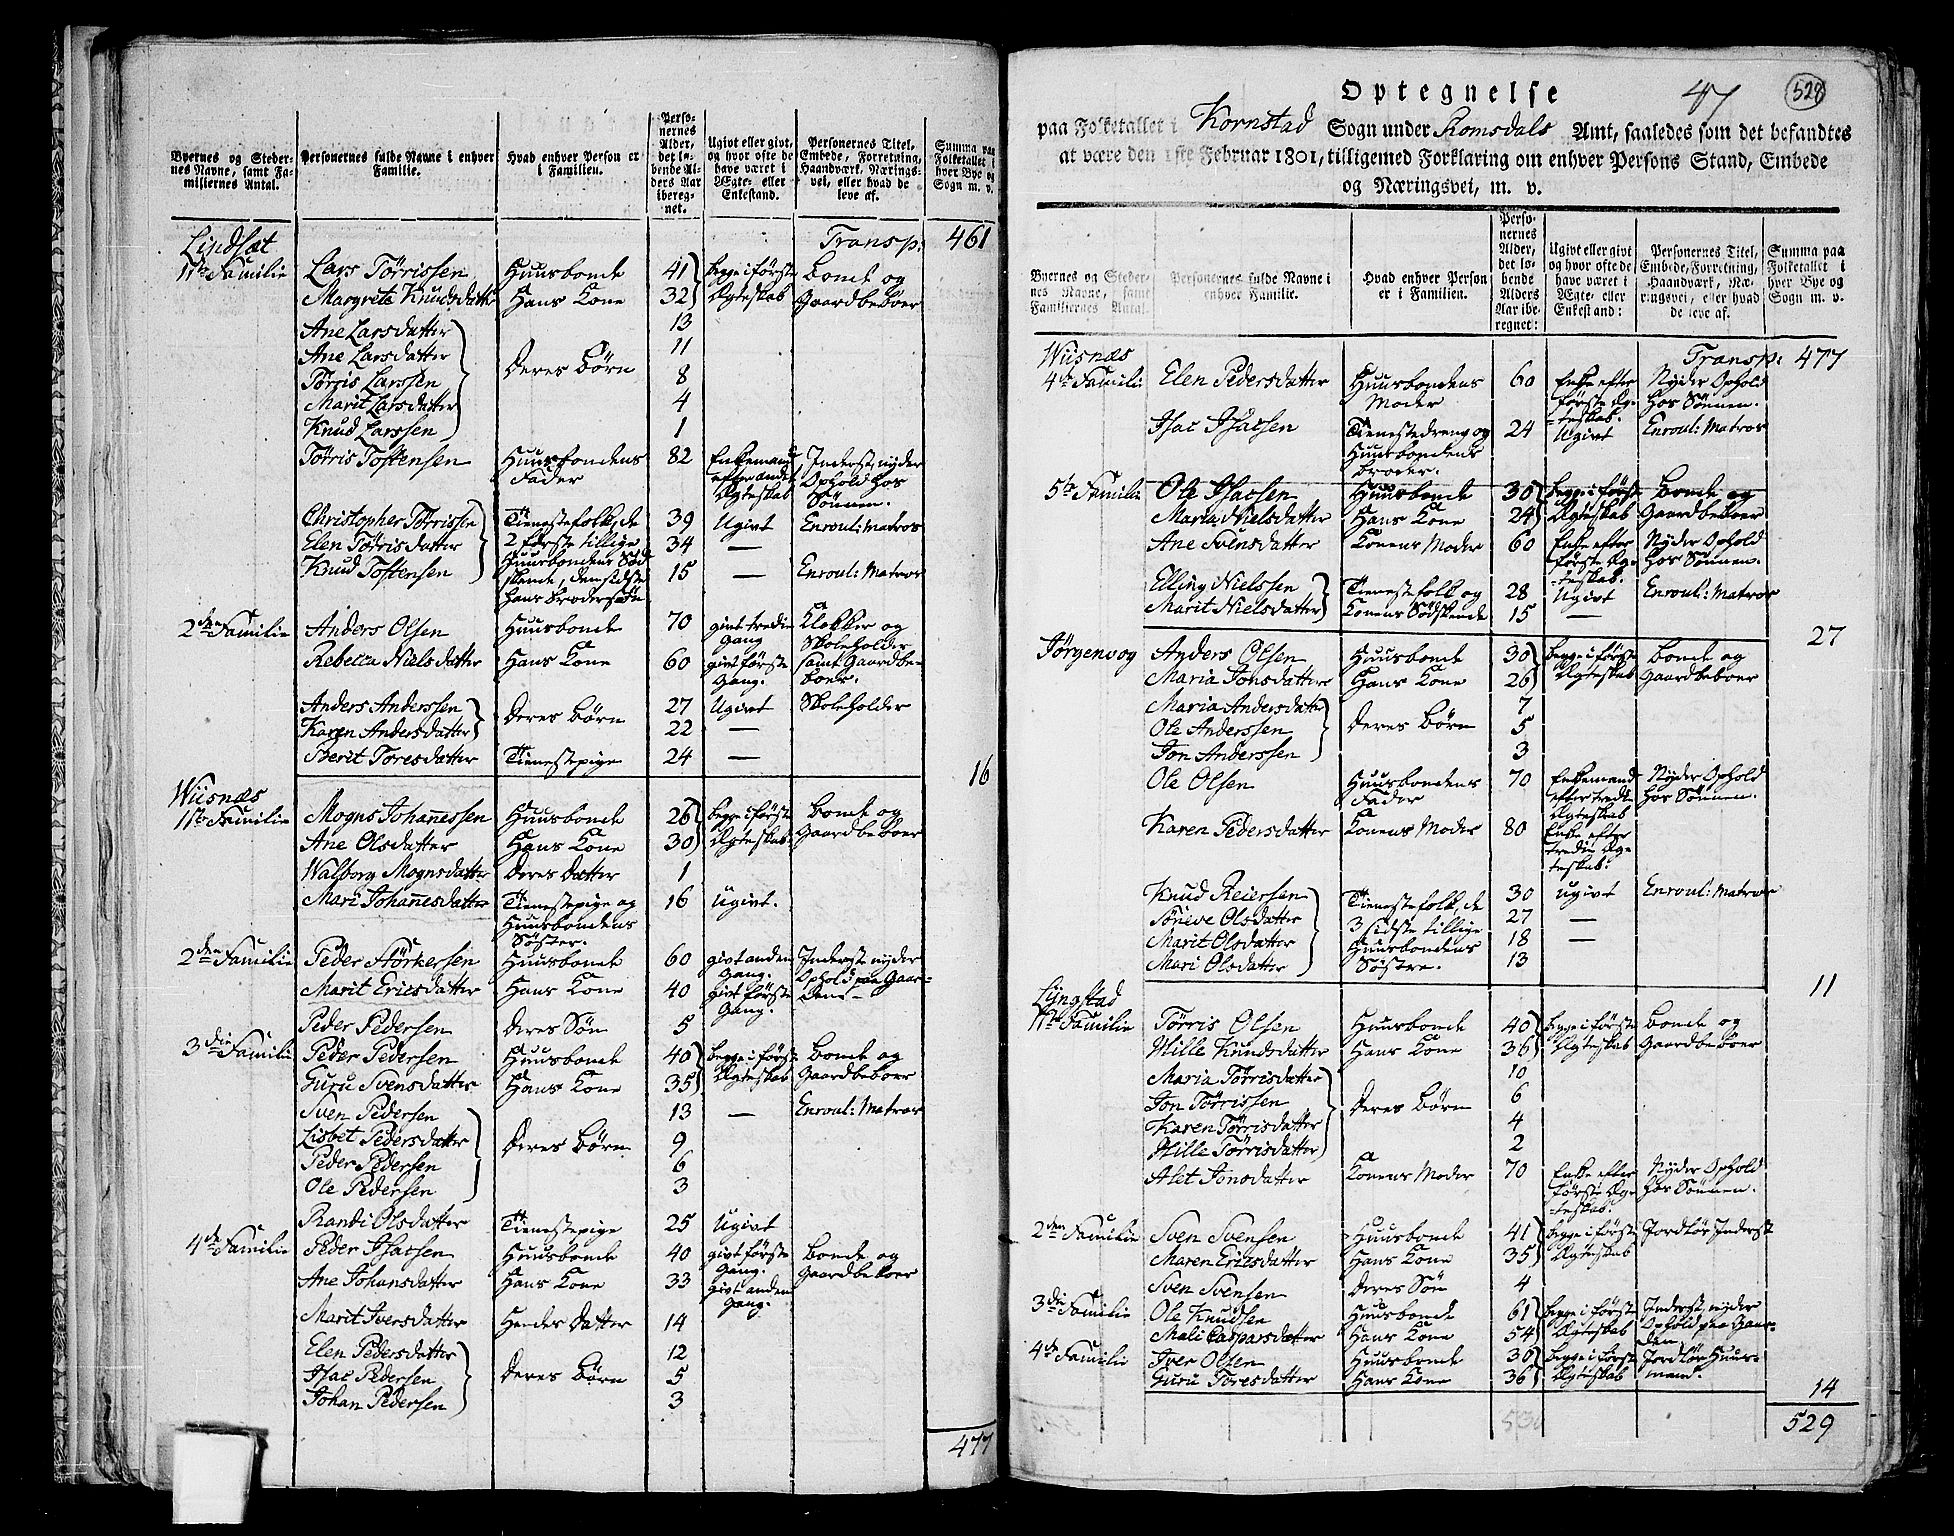 Byernes og Steder-
nes Navne, samt Fa-
miliernes Antal.
Personernes fulde Navne i enhver
Familie.
Hvad enhver Person er
i Familien.
Perso-
nernes
Alder,
det lø-
bende Al-
ders Aar
ibereg-
net.
Ugivt eller givt,
og hvor ofte de
have været i
Ægte- eller
Enkestand.
Personernes Titel,
Embede, Forretning,
Haandværk, Nærings-
vei, eller hvad de
leve af.
Summa paa
Folketallet i
hver Bye og
Sogn m. v.
Lindsæt Transp: 461
1ste Familie Lars Tørrissen Huusbonde 41 begge i første Bonde og
Margrete Knudsdatter Hans Kone 32 Ægteskab Gaardbeboer
Ane Larsdatter 13
Ane Larsdatter 11
Tørris Larssen Deres Børn 8
Marit Larsdatter 4
Knud Larssen 1
Tørris Tostensen Huusbondens 82 Enkemand Inderst, nyder
Fader efter andet Ophold hos
Ægteskab Sønnen.
Christopher Tørrissen Tienestefolk, de 39 Ugivt Enroul: Matros
Elen Tørrisdatter 2 første tillige 34 —
Knud Tostensen Huusbondens Sød- 15 — Enroul: Matros
skende, den sidste
hans Brodersøn
2den Familie Anders Olsen Huusbonde 70 givt tredie Klokker og
Gang Skoleholder
Rebecca Nielsdatter Hans Kone 60 givt første samt Gaardbe-
Gang. boer.
Anders Anderssen Deres Børn 27 Ugivt Skoleholder
Karen Andersdatter 22 —
Berit Toresdatter Tienestepige 24 —
16
Wiisnæs
1ste Familie Mogns Johannessen Huusbonde 26 begge i første Bonde og
Ane Olsdatter Hans Kone 30 Ægteskab. Gaardbeboer
Walborg Mognsdatter Deres Datter 1
Mari Johannesdatter Tienestepige og 16 Ugivt.
Huusbondens
Søster.
2den Familie Peder Størkersen Huusbonde 60 givt anden Inderst nyder
Gang. Ophold paa Gaar-
Marit Ericsdatter Hans Kone 40 givt første den.
Gang.
Peder Pedersen Deres Søn 5
3die Familie Peder Pedersen Huusbonde 40 begge i første Bonde og
Guru Svensdatter Hans Kone 35 Ægteskab Gaardbeboer
Sven Pedersen 13 — Enroul: Matros
Lisbet Pedersdatter Deres Børn 9
Peder Pedersen 6
Ole Pedersen 3
Randi Olsdatter Tienestepige 25 Ugivt
4de Familie Peder Isacsen Huusbonde 40 givt første Bonde og
Gang. Gaardbeboer
Ane Johansdatter Hans Kone 33 givt anden
Gang.
Marit Iversdatter Hendes Datter 14
Elen Pedersdatter 12
Isac Pedersen Deres Børn 5
Johan Pedersen 3
477
47
528
Optegnelse
paa Folketallet i Kornstad Sogn under Romsdals Amt, saaledes som det befandtes
at være den 1ste Februar 1801, tilligemed Forklaring om enhver Persons Stand, Embede
og Næringsvei, m. v.
Byernes og Steder-
nes Navne, samt
Familiernes Antal.
Personernes fulde Navne i
enhver Familie.
Hvad enhver Person
er i Familien.
Perso-
nernes
Alder,
det lø-
bende
Alders
Aar ibe-
regnet:
Ugivt eller givt
og hvor ofte de
have været i
Ægte- eller
Enkestand:
Personernes Titel,
Embede, Forretning,
Haandværk, Næ-
ringsvei, eller hvad
de leve af.
Summa paa
Folketallet i
hver Bye og
Sogn m. v.
Wiisnæs Transp: 477
4de Familie Elen Pedersdatter Huusbondens 60 Enke efter Nyder Ophold
Moder første Æg- hos Sønnen.
teskab.
Isac Isacsen Tienestedreng og 24 Ugivt Enroul: Matros
Huusbondens
Broder.
5te Familie Ole Isacsen Huusbonde 30 begge i første Bonde og
Maria Nielsdatter Hans Kone 24 Ægteskab Gaardbeboer
Ane Svensdatter Konens Moder 60 Enke efter Nyder Ophold
første Æg- hos Sønnen.
teskab.
Elling Nielssen Tienestefolk og 28 Ugivt Enroul: Matros
Marit Nielsdatter Konens Sødskende 15 —
27
Jørgenvog Anders Olsen Huusbonde 30 begge i første Bonde og
Maria Jonsdatter Hans Kone 26 Ægteskab Gaardbeboer
Maria Andersdatter 7
Ole Anderssen Deres Børn 5
Jon Anderssen 3
Ole Olsen Huusbondens 70 Enkemand Nyder Ophold
Fader efter tredie hos Sønnen.
Ægteskab
Karen Pedersdatter Konens Moder 80 Enke efter
tredie Æg-
teskab.
Knud Reiersen Tienestefolk, de 30 Ugivt Enroul: Matros
Søneve Olsdatter 3 sidste tillige 27 —
Marit Olsdatter Huusbondens 18 —
Mari Olsdatter Søstre. 13
11
Lyngstad
1ste Familie Tørris Olsen Huusbonde 40 begge i første Bonde og
Mille Knudsdatter Hans Kone 36 Ægteskab Gaardbeboer
Maria Tørrisdatter 10
Jon Tørrissen Deres Børn 6
Karen Tørrisdatter 4
Mille Tørrisdatter 2
Alet Jonsdatter Konens Moder 70 Enke efter Nyder Ophold
første Æg- hos Sønnen.
teskab.
2den Familie Sven Svensen Huusbonde 41 begge i første Jordløs Inderst
Maren Ericsdatter Hans Kone 35 Ægteskab
Sven Svensen Deres Søn 4
3die Familie Ole Knudsen Huusbonde 61 begge i første Inderst, nyder
Mali Caspersdatter Hans Kone 54 Ægteskab Ophold paa Gaar-
den
4de Familie Iver Olsen Huusbonde 30 begge i første Jordløs Huus-
Guru Toresdatter Hans Kone 36 Ægteskab mand.
14
529